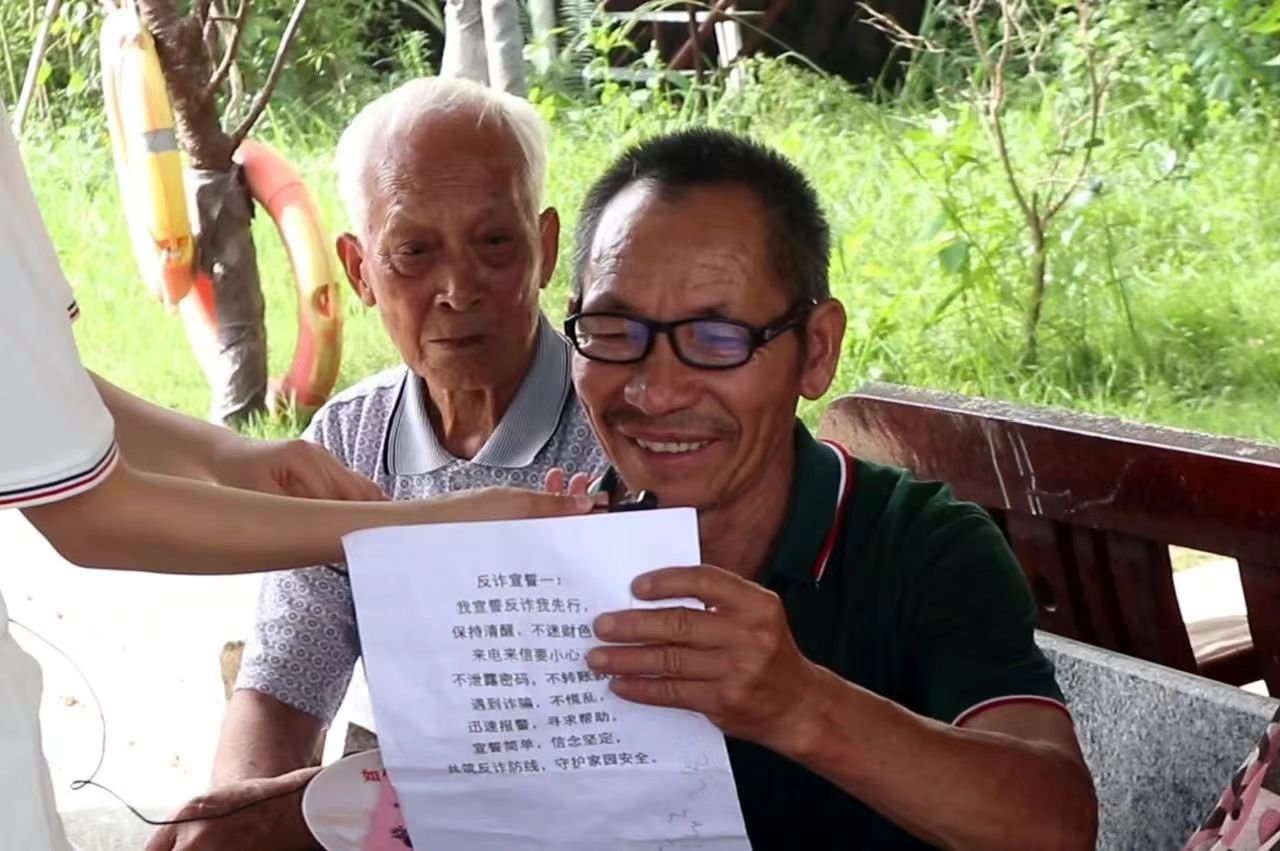 反诈宣誓一：
我宣誓反诈我先行，
保持清醒，不迷财色
来电来信要小心，
不泄露密码，不转账
遇到诈骗，不慌乱，
迅速报警，寻求帮助。
宣誓简单，信念坚定，
共筑反诈防线，守护家园安全。
如